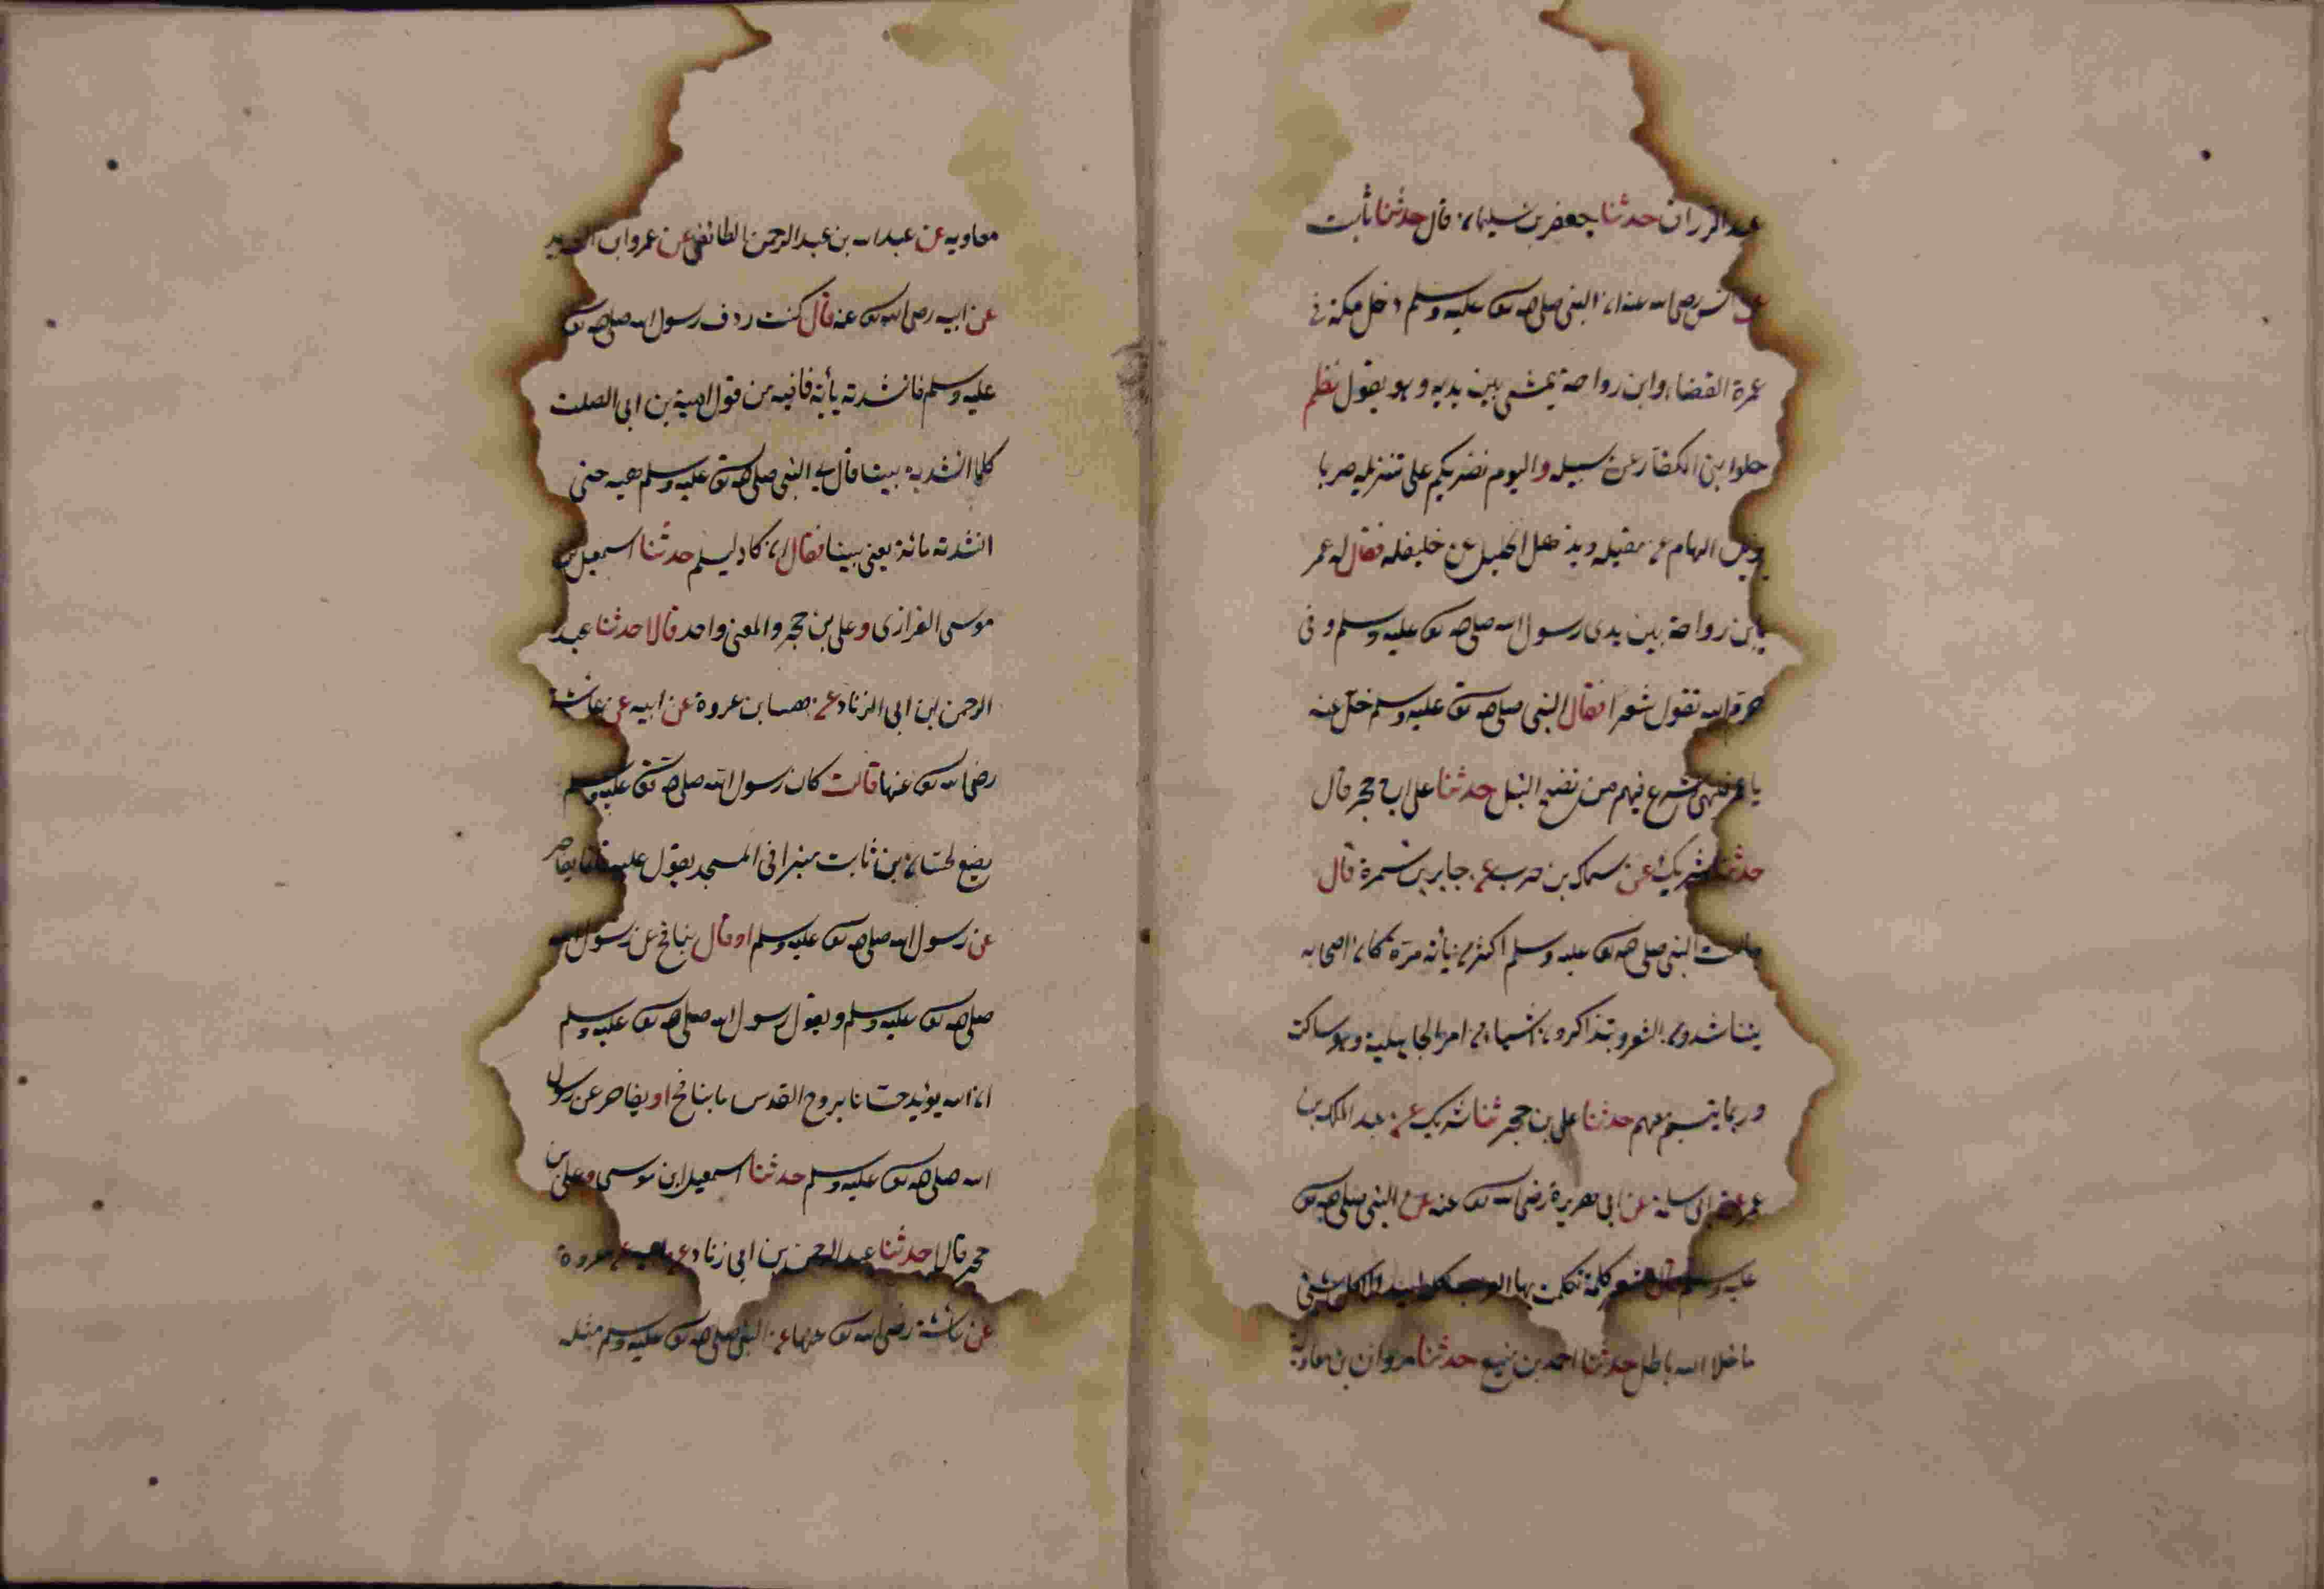 عبد الرزاق حدثنا جعفر بن سليمان قال حدثنا ثابت
عن انس رضى الله عنه ان النبى صلى الله تعالى عليه وسلم دخل مكة فى
عمرة القضاء وابن رواحة يمشى بين يديه وهو يقول نظم
خلوا بنى الكفار عن سبيله واليوم نضربكم على تنزيله ضربا
يزيل الهام عن مقيله ويذهل الخليل عن خليله فقال له عمر
يا ابن رواحة بين يدى رسول الله صلى الله تعالى عليه وسلم وفى
حرم الله تقول شعرا فقال النبى صلى الله تعالى عليه وسلم خل عنه
يا عمر فلهى اسرع فيهم من نضح النبل حدثنا على بن حجر قال
حدثنا شريك عن سماك بن حرب عن جابر بن سمرة قال
جالست النبى صلى الله تعالى عليه وسلم اكثر من مائة مرة كان اصحابه
يتناشدون الشعر ويتذاكرون اشياء من امر الجاهلية وهو ساكت
وربما يتبسم معهم حدثنا على بن حجر ثنا شريك عن عبد الملك بن
عمير عن ابى سلمة عن ابى هريرة رضى الله تعالى عنه عن النبى صلى الله تعالى
عليه وسلم قال اشعر كلمة تكلمت بها العرب كلمة لبيد الا كل شئ
ما خلا الله باطل حدثنا احمد بن منيع حدثنا مروان بن معاوية
معاويه عن عبد الله بن عبد الرحمن الطائفى عن عمرو ابن الشريد
عن ابيه رضى الله تعالى عنه قال كنت ردف رسول الله صلى الله تعالى
عليه وسلم فانشدته مائة قافية من قول امية بن ابى الصلت
كلما انشدته بيتا قال لى النبى صلى الله تعالى عليه وسلم هيه حتى
انشدته مائة يعنى بيتا فقال ان كاد ليسلم حدثنا اسمعيل بن
موسى الفزازى وعلى بن حجر والمعنى واحد قالا حدثنا عبد
الرحمن ابن ابى الزناد عن هشام بن عروة عن ابيه عن عائشة
رضى الله تعالى عنها قالت كان رسول الله صلى الله تعالى عليه وسلم
يضع لحسان بن ثابت منبرا فى المسجد يقول عليه قائما يفاخر
عن رسول الله صلى الله تعالى عليه وسلم او قال ينافح عن رسول الله
صلى الله تعالى عليه وسلم ويقول رسول الله صلى الله تعالى عليه وسلم
ان الله يؤيد حسانا بروح القدس ما ينافح او يفاخر عن رسول
الله صلى الله تعالى عليه وسلم حدثنا اسمعيل ابن موسى وعلى بن
حجر قالا حدثنا عبد الرحمن بن ابى زناد عن ابيه عن عروة
عن عائشة رضى الله تعالى عنها عن النبى صلى الله تعالى عليه وسلم مثله